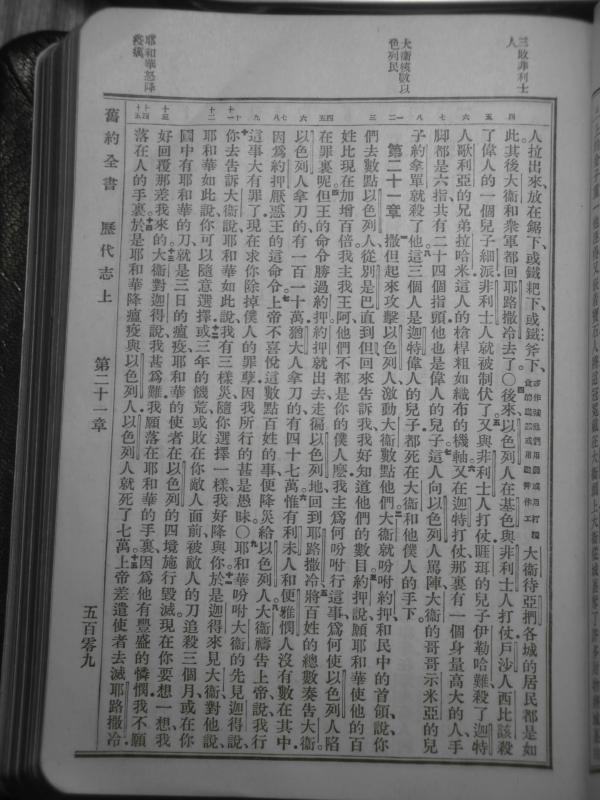 三敗非利士人
大衛核數以色列民
耶和華怒降疫癘
人拉出來放在鋸下或鐵耙下或鐵斧下、大衛待亞捫各城的居民都是如
此其後大衛和衆軍都回耶路撒冷去了〇後來以色列人在基色與非利士人打仗戶沙人西比該殺
了偉人的一個兒子細派非利士人就被制伏了又與非利士人打仗睚珥的兒子伊勒哈難殺了迦特
人歌利亞的兄弟拉哈米這人的槍桿粗如織布的機軸又在迦特打仗那裏有一個身量高大的人手
脚都是六指共有二十四個指頭他也是偉人的兒子這人向以色列人罵陣大衛的哥哥示米亞的兒
子約拿單就殺了他這三個人是迦特偉人的兒子都死在大衛和他僕人的手下
第二十一章 撒但起來攻擊以色列人激動大衛數點他們大衛就吩咐約押和民中的首領說你
們去數點以色列人從別是巴直到但回來告訴我我好知道他們的數目約押說願耶和華使他的百
姓比現在加增百倍我主我王阿他們不都是你的僕人麼我主爲何吩咐行這事爲何使以色列人陷
在罪裏呢但王的命令勝過約押約押就出去走徧以色列地回到耶路撒冷將百姓的總數奏告大衛
以色列人拿刀的有一百一十萬猶大人拿刀的有四十七萬惟有利未人和便雅憫人沒有數在其中
因爲約押厭惡王的這命令上帝不喜悅這數點百姓的事便降災給以色列人大衛禱告上帝說我行
這事大有罪了現在求你除掉僕人的罪孽因我所行的甚是愚昧〇耶和華吩咐大衛的先見迦得說
你去告訴大衛說耶和華如此說我有三樣災隨你選擇一樣我好降與你於是迦得來見大衛對他說
耶和華如此說你可以隨意選擇或三年的饑荒或敗在你敵人面前被敵人的刀追殺三個月或在你
國中有耶和華的刀就是三日的瘟疫耶和華的使者在以色列的四境施行毀滅現在你要想一想我
好回覆那差我來的大衛對迦得說我甚爲難我願落在耶和華的手裏因爲他有豐盛的憐憫我不願
落在人的手裏於是耶和華降瘟疫與以色列人以色列人就死了七萬上帝差遣使者去滅耶路撒冷
舊約全書 歷代志上 第二十一章 五百零九